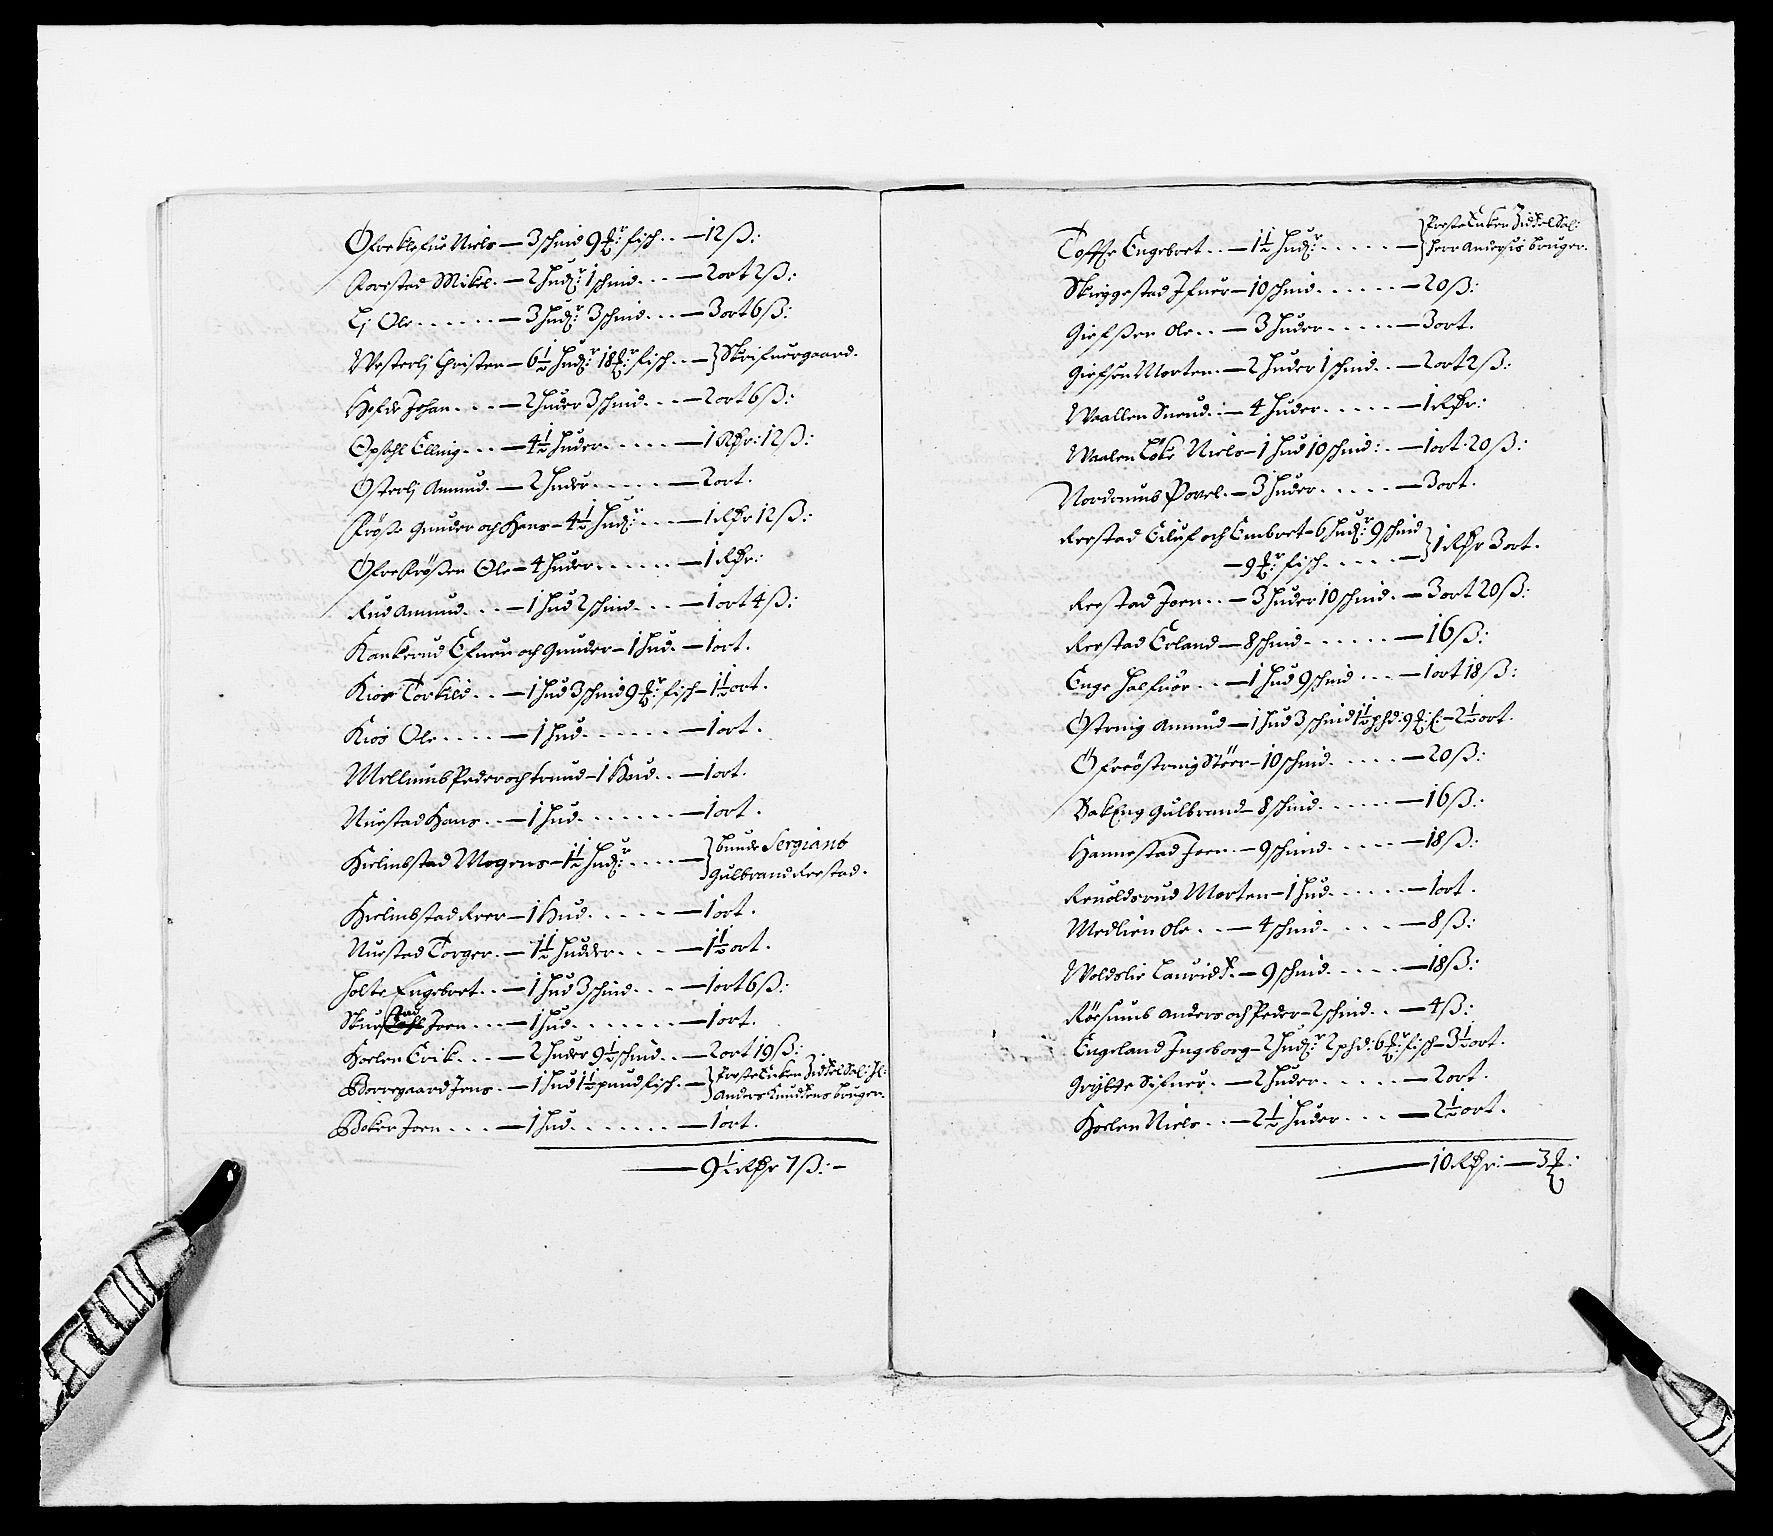 Øfre Klefue Niels — 3 schind 9 ℔r: fisch . . — 12 ß:
Forstad Mikel . — 2 Hudr: 1 schind . . . — 2 ort 2 ß:
Lj Ole . . . . . . — 3 Hudr: 3 schind . . . — 3 ort 6 ß:
Westerlj Christen — 6½ Hudr: 18 ℔r: fisch . . — } Skrifuergaard .
Hofde Johan . . . — 2 Huder 3 schind . . . — 2 ort 6 ß:
Opsahl Elling . . . — 4½ Huder . . . . . — 1 Rdr: 12 ß:
Østerlj Amund . — 2 Huder . . . . . — 2 ort .
Frøße Gunder och Hans — 4½ Hudr: . . . — 1 Rdr 12 ß:
Øfre Frøßen Ole — 4 Huder . . . . . . — 1 Rdr:
Rud Amund . . . — 1 Hud 2 schind . . . — 1 ort 4 ß:
Kankerud Efuen och Gunder — 1 Hud . — 1 ort .
Kios Torkild . . — 1 Hud 3 schind 9 ℔r: fisch — 1½ ort .
Kios Ole . . . . — 1 Hud . . . . . . — 1 ort .
Mellumb Peder och Knud — 1 Hud . . — 1 ort .
Nuestad Hans . . — 1 Hud . . . . . . . — 1 ort .
Hielmbstad Mogens — 1½ Hudr: . . . . — } bunde Sergiant
Gulbrand Reestad .
Hielmbstad Freer — 1 Hud . . . . . — 1 ort .
Nuestad Torger . — 1½ Hudder . . . — 1½ ort .
Holte Engebret . . — 1 Hud 3 schind . . . — 1 ort 6 ß:
Joen . . . — 1 Hud . . . . . . . — 1 ort .
Hoelen Erik . . . — 2 Huder 9½ schind . . — 2 ort 19 ß:
Borregaard Jens . — 1 Hud 1½ pund fisch . — } Preste Enken
Anders Knudsens bruger .
Boker Joen . . . — 1 Hud . . . . . . . — 1 ort .
— 9½ Rdr 7 ß: —
Toffte Engebret . . — 1½ Hudr: . . . . . — } Preste Enken
Herr Andersis bruger .
Skieggestad Ifuer — 10 schind . . . . . . — 20 ß:
Giefßen Ole . . — 3 Huder . . . . . — 3 ort .
Giefsen Morten . — 2 Huder 1 schind . . — 2 ort 2 ß:
Waallen Suend . — 4 Huder . . . . . — 1 Rdr:
Waalen Løke Niels — 1 Hud 10 schind: . — 1 ort . 20 ß:
Nordrumb Povel . — 3 Huder . . . . . — 3 ort .
Reestad Eiluf och Embret — 6 Hudr: 9 schind
— 9 ℔r: fisch . . . . . — } 1 Rdr 3 ort .
Reestad Joen . . — 3 Huder 10 schind . — 3 ort 20 ß:
Reestad Erland — 8 schind . . . . . . — 16 ß:
Enge Halfuor . . — 1 Hud 9 schind . . . — 1 ort 18 ß:
Østenig Amund — 1 Hud 3 schind 1½ phd: 9 ℔r: f: — 2½ ort .
Øfreøstenig Støer — 10 schind . . . . . — 20 ß:
BakEng Gulbrand — 8 schind . . . . . . — 16 ß:
Hannestad Joen . — 9 schind . . . . . — 18 ß:
Renoldsrud Morten — 1 Hud . . . . . — 1 ort .
Medlien Ole . . — 4 schind . . . . . — 8 ß:
Woldslie Lauridtz . — 9 schind . . . . . — 18 ß:
Røesumb Anders och Peder — 2 schind . . — 4 ß:
Engeland Ingeborg — 2 Hudr: 2 phd: 6 ℔r: fisch — 3½ ort .
Grytte Sifuer . — 2 Huder . . . . . — 2 ort .
Hoelen Niels . . — 2½ Huder . . . — 2½ ort .
— 10 Rdr: — 3 ß: